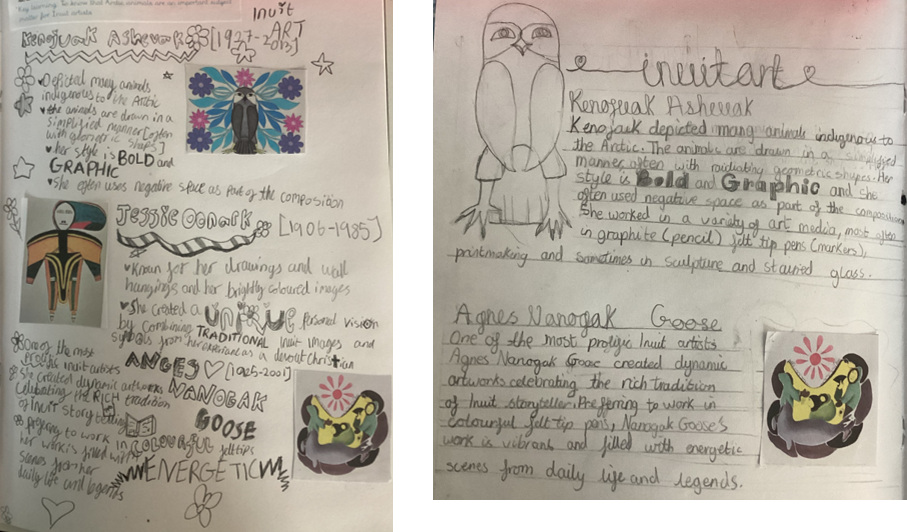 Key learning: To know that Arctic animals are an important subject
matter for Inuit artists
Inuit
ART
Kenojuak Ashevak [1927-2013]
Depicted many animals
indigenous to the Arctic
the animals are drawn in a
simplified manner [often
with geometric shapes]
her style is BOLD and
GRAPHIC
She often uses negative space as part of the composition
Jessie Oonark [1906-1985]
Known for her drawings and wall
hangings and her brightly coloured images
She created a UNIQUE personal vision
by combining TRADITIONAL Inuit images and
symbols from her experience as a devout Christian
One of the most
prolific inuit artists
She created dynamic artworks
celebrating the RICH tradition
of Inuit storytelling
preferring to work in COLOURFUL felt tips
her work is filled with ENERGETIC
scenes from her
daily life and legends
ANGES [1925-2001]
NANOGAK
GOOSE
inuit art
Kenojuak Ashevak
Kenojauk depicted many animals indigenous to
the Arctic. The animals are drawn in a simplified
manner often with radiating geometric shapes. Her
style is Bold and Graphic and she
often used negative space as part of the composition
She worked in a variety of art media, most often
in graphite (pencil) felt tip pens (markers),
printmaking and sometimes in sculpture and stained glass.
Agnes Nanogak Goose
One of the most prolific Inuit artists
Agnes Nanogak Goose created dynamic
artworks celebrating the rich tradition
of Inuit storyteller. Preferring to work in
colourful felt tip pens, Nanogak Goose's
work is vibrant and filled with energetic
scenes from daily life and legends.